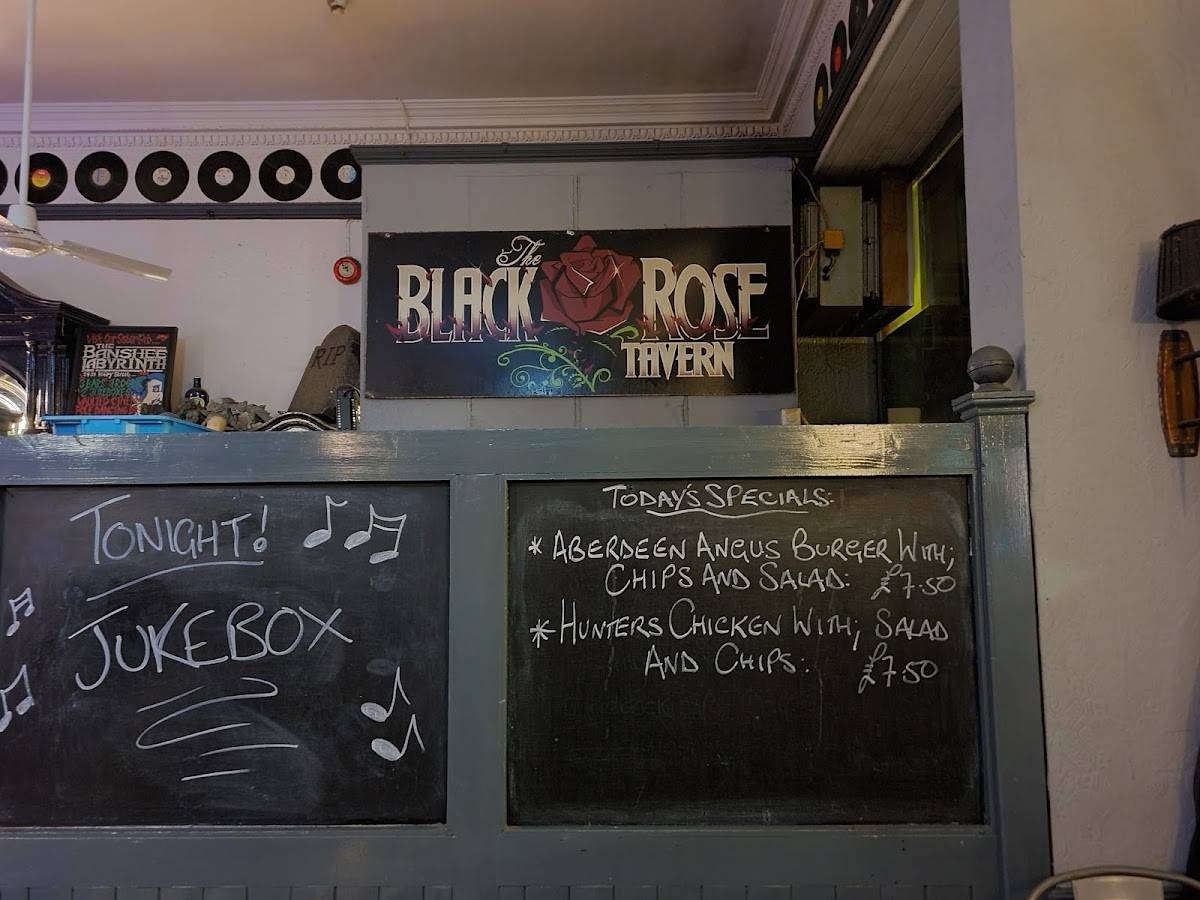 The
BLACK ROSE
TAVERN
RIP
THE
BANSHEE
LABYRINTH
TONIGHT!
JUKEBOX
TODAY'S SPECIALS:
* ABERDEEN ANGUS BURGER WITH;
CHIPS AND SALAD: £7.50
* HUNTERS CHICKEN WITH; SALAD
AND CHIPS: £7.50